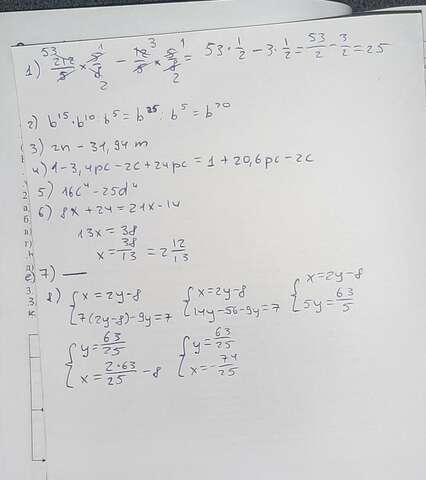 1) 53 212/5 × 5 1/8 2 − 12 3/8 × 5 1/8 2 = 53·1/2 − 3·1/2 = 53/2 − 3/2 = 25
2) b^15 · b^10 : b^5 = b^25 : b^5 = b^20
3) 2n − 31,94 m
4) 1 − 3,4pc − 2c + 24pc = 1 + 20,6pc − 2c
5) 16c^4 − 25d^4
6) 8x + 24 = 21x − 14
13x = 38
x = 38/13 = 2 12/13
7) —
8) { x = 2y − 8 { x = 2y − 8 { x = 2y − 8
7(2y − 8) − 9y = 7 14y − 56 − 9y = 7 5y = 63/5
{ y = 63/25 { y = 63/25
x = 2·63/25 − 8 x = − 74/25